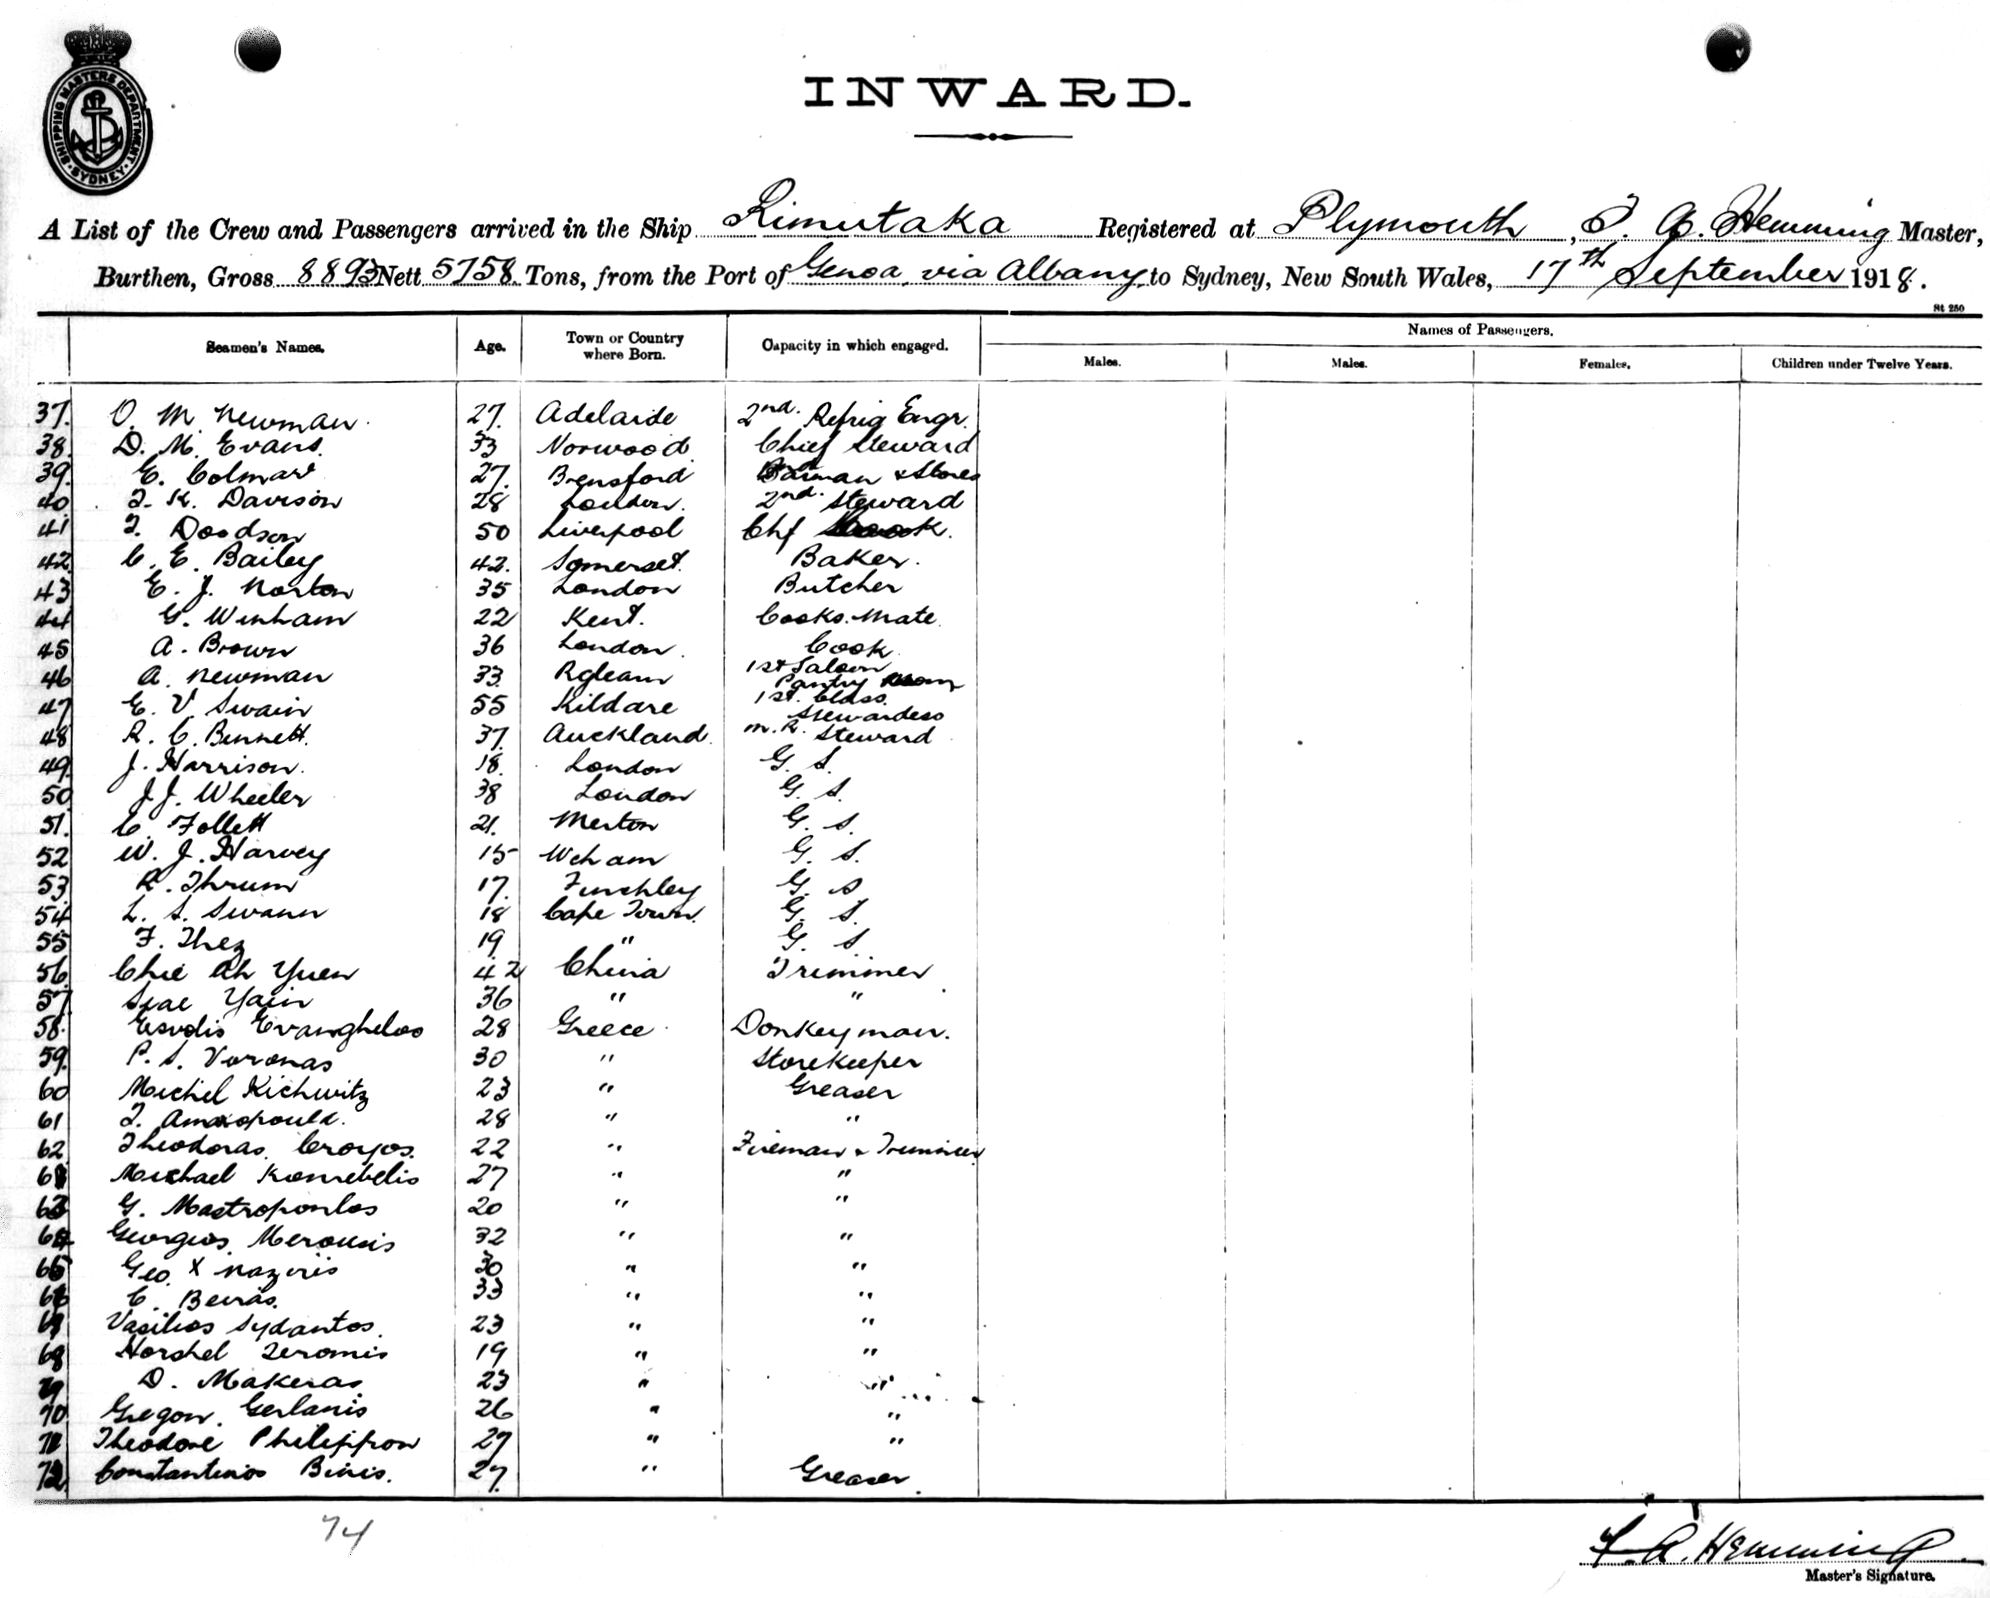 INWARD.
SHIPPING MASTERS DEPARTMENT SYDNEY
A List of the Crew and Passengers arrived in the Ship Rimutaka Registered at Plymouth, F. A. Hemming Master,
Burthen, Gross 8893 Nett 5758. Tons, from the Port of Genoa via Albany, to Sydney, New South Wales, 17th September 1918.
St 250
Seamen's Names. Age. Town or Country where Born. Capacity in which engaged. Names of Passengers.
Males. Males. Females. Children under Twelve Years.
37. O. M. Newman. 27. Adelaide 2nd. Refrig Engr.
38. D. M. Evans. 33 Norwood Chief Steward
39. E. Colmar 27. Barman & Stores
40 T. K. Davison 28 London. 2nd. Steward
41 T. Doodson 50 Liverpool Chf Cook.
42. C. E. Bailey 42. Somerset. Baker.
43 E. J. Norton 35 London Butcher
44 G. Winham 22 Kent. Cooks. Mate
45 A. Brown 36 London. Cook
46 A. Newman 33. 1st Saloon Pantry
47 E. V Swain 55 Kildare 1st. Class. Stewardess
48 R. C. Bennett. 37. Auckland. M. R. Steward
49. J. Harrison. 18. London G. S.
50 J. J. Wheeler 38 London G. S.
51. C. Follett 21. Merton G. S.
52 W. J. Harvey 15 G. S.
53. R. Thrum 17. Finchley G. S
54 L. S. Swann 18 Cape Town. G. S.
55 F. Thez 19 " G. S
56. Chie Ah Yuen 42 China Trimmer
57 Siae Yain 36 " "
58. Evanghelos 28 Greece Donkeyman.
59. P. S. Voronas 30 " Storekeeper
60 Michel Kichwitz 23 " Greaser
61 T. 28 " "
62 Theodoras 22 " Fireman & Trimmer
6 Michael 27 " "
63 G. Mastropoulos 20 " "
64 Georgios 32 " "
65 Geo. X Naziris 30 " "
66 C. Beiras. 33 " "
Vasilios Sydantos. 23 " "
68 19 " "
D. Makeras 23 " "
70 Gerlanis 26 " "
71 Theodore Philippou 27 " "
72 Constantinos Binis. 27. " Greaser.
74
F. A. Hemming
Master's Signature.